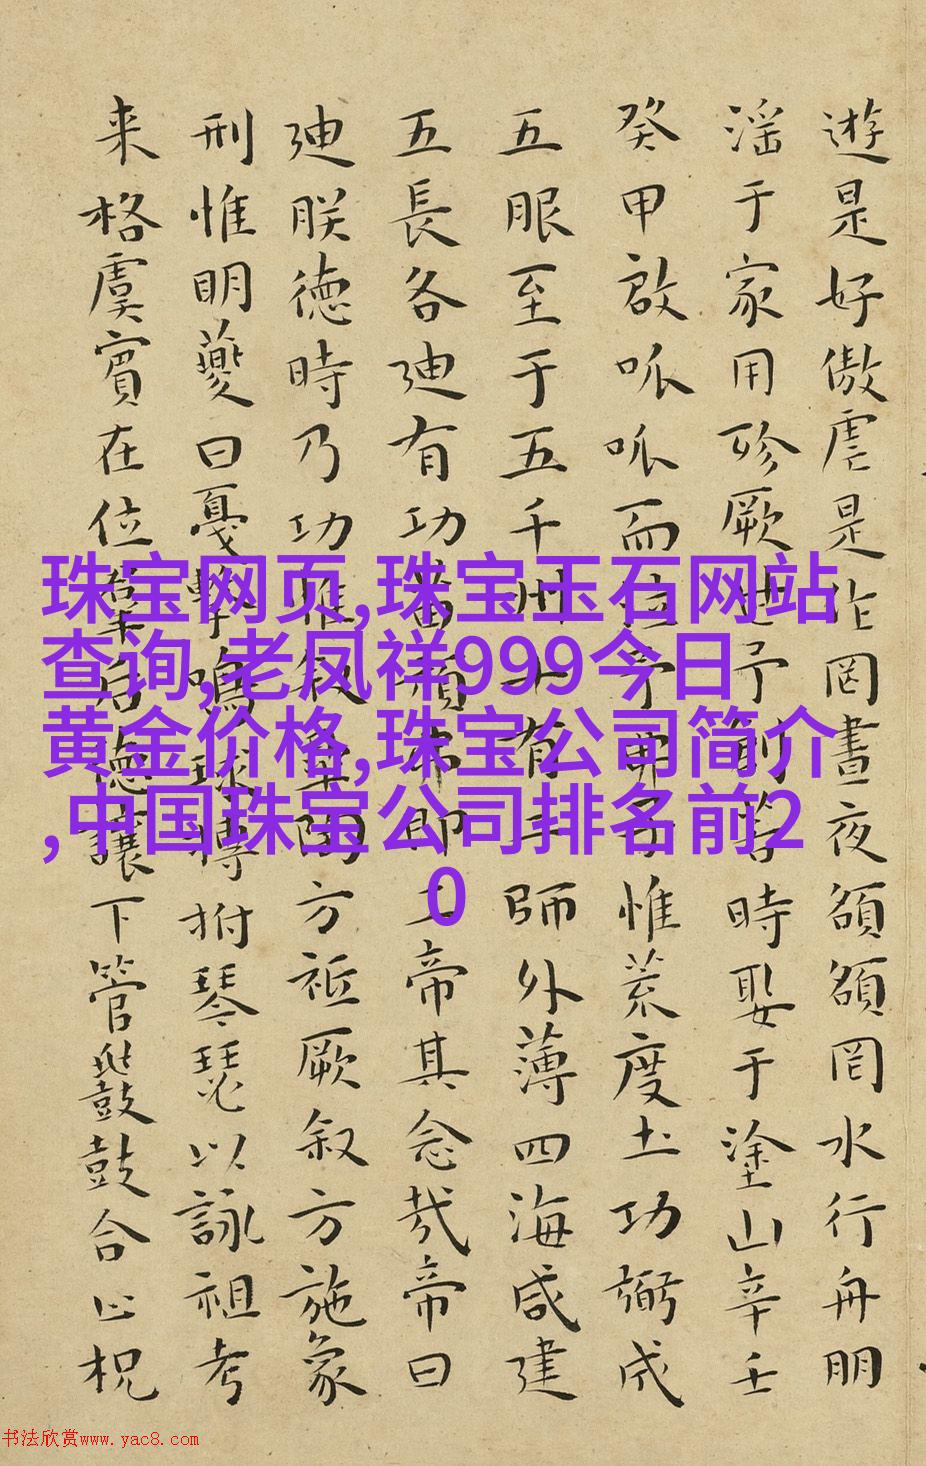 遊是好傲虐是作罔晝夜頟頟罔水行舟朋
滛于家用殄厥世予創若時娶于塗山辛壬
癸甲啟呱呱而泣予弗子惟荒度土功弼成
五服至于五千州十有二師外薄四海咸建
五長各迪有功苗頑弗即工帝其念哉帝曰
迪朕德時乃功惟叙皋陶方祗厥叙方施象
刑惟明夔曰戛擊鳴球搏拊琴瑟以詠祖考
来格虞賓在位羣后德讓下管鼗鼓合止柷
珠宝网页,珠宝玉石网站
查询,老凤祥999今日
黄金价格,珠宝公司简介
,中国珠宝公司排名前2
0
书法欣赏www.yac8.com